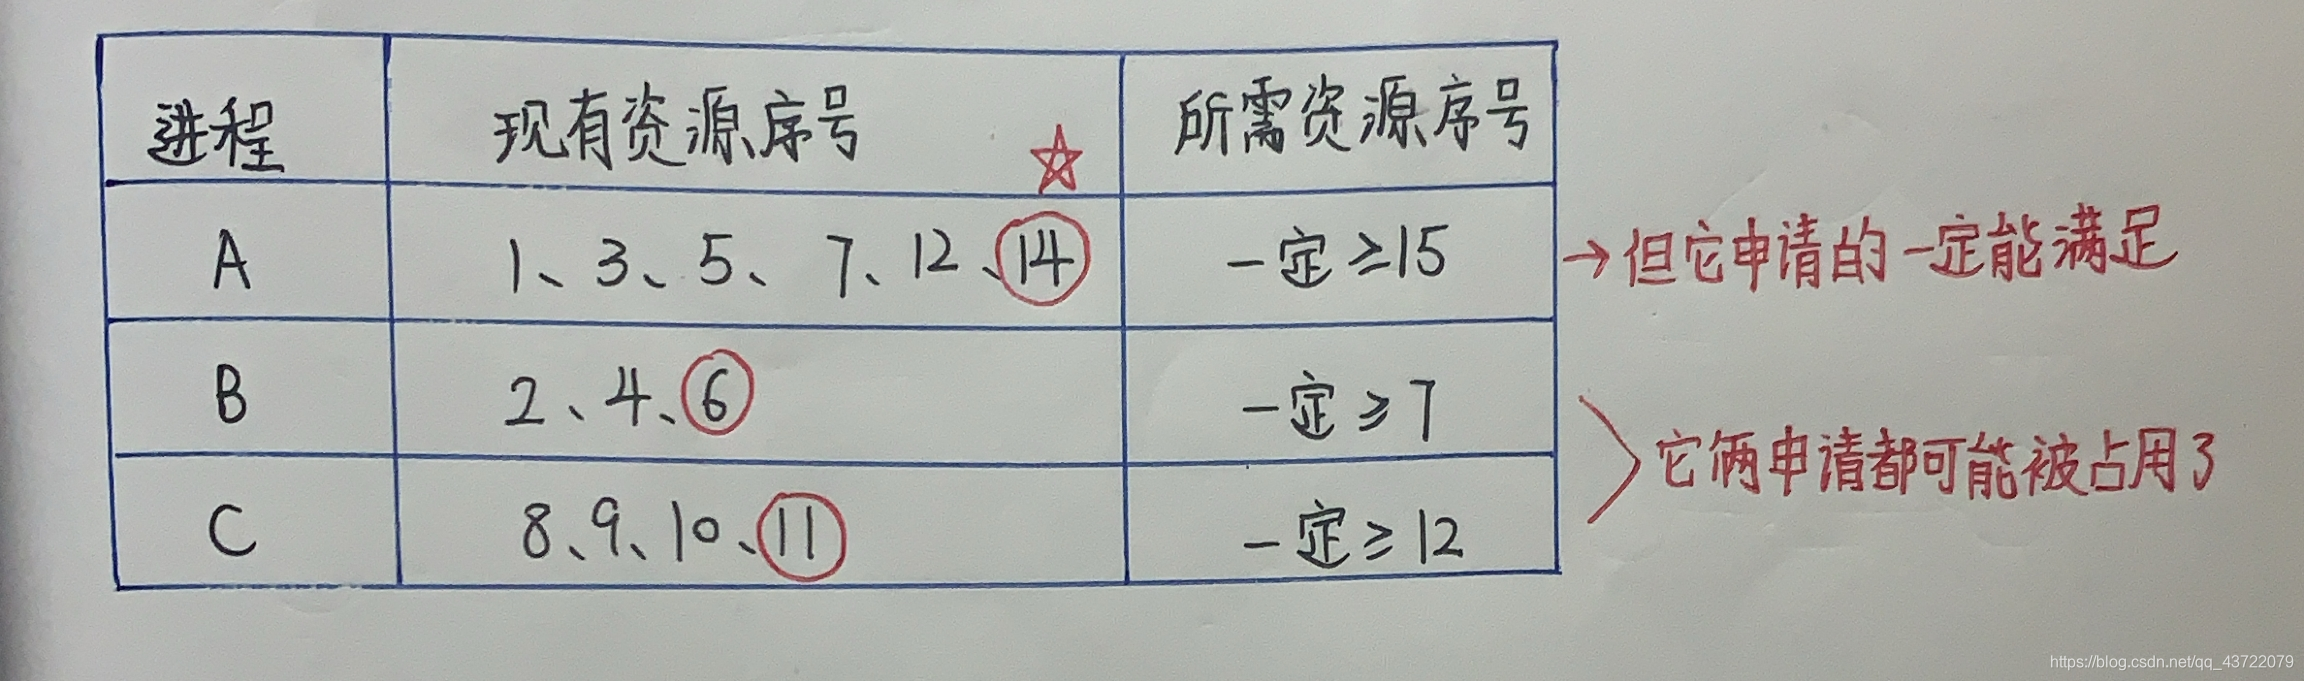 进程 现有资源序号 ☆ 所需资源序号
A 1、3、5、7、12、14 一定≥15 →但它申请的一定能满足
B 2、4、6 一定≥7
它俩申请都可能被占用了
C 8、9、10、11 一定≥12
https://blog.csdn.net/qq_43722079